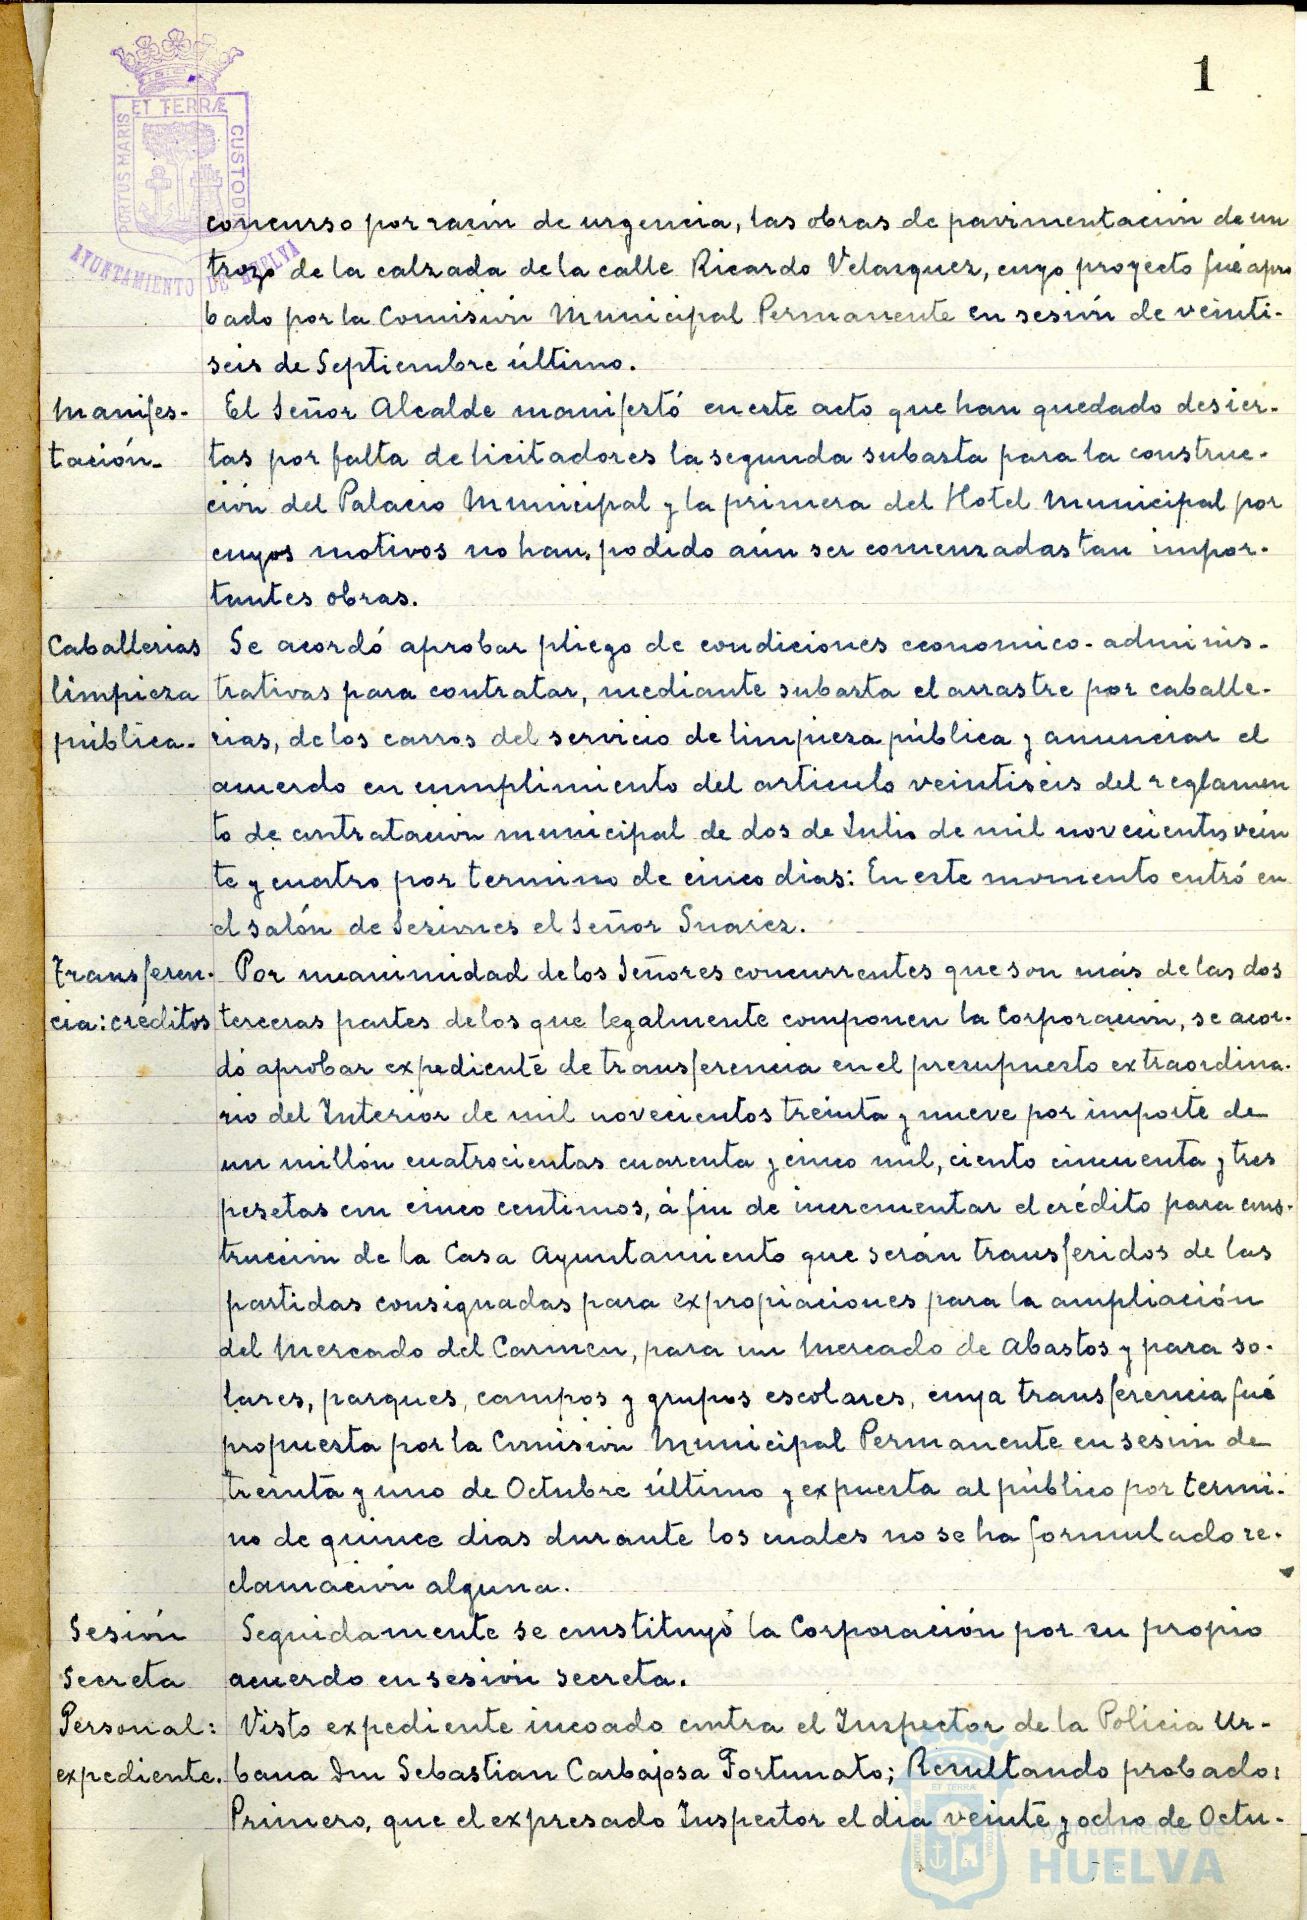 1
ET TERRÆ
PORTUS MARIS
CUSTODI
AYUNTAMIENTO DE HUELVA
concurso por razón de urgencia, las obras de pavimentación de un
trozo de la calzada de la calle Ricardo Velazquez, cuyo proyecto fué apro
bado por la Comisión Municipal Permanente en sesión de veinti-
seis de Septiembre último.
Manifes-
tación-
El Señor Alcalde manifestó en este acto que han quedado desier-
tas por falta de licitadores la segunda subasta para la construc-
ción del Palacio Municipal y la primera del Hotel Municipal por
cuyos motivos no han podido aún ser comenzadas tan impor-
tantes obras.
Caballerias
limpieza
pública.
Se acordó aprobar pliego de condiciones economico-adminis-
trativas para contratar, mediante subasta el arrastre por caballe-
rias, de los carros del servicio de limpieza pública y anunciar el
acuerdo en cumplimiento del articulo veintiseis del reglamen
to de contratación municipal de dos de Julio de mil novecientos vein
te y cuatro por termino de cinco dias: En este momento entró en
el salón de Sesiones el Señor Suarez.
Transferen-
cia: créditos
Por unanimidad de los Señores concurrentes que son más de las dos
terceras partes de los que legalmente componen la Corporación, se acor-
dó aprobar expediente de transferencia en el presupuesto extraordina-
rio del Interior de mil novecientos treinta y nueve por importe de
un millón cuatrocientas cuarenta y cinco mil, ciento cincuenta y tres
pesetas con cinco centimos, á fin de incrementar el crédito para cons-
trucción de la Casa Ayuntamiento que serán transferidos de las
partidas consignadas para expropiaciones para la ampliación
del Mercado del Carmen, para un Mercado de Abastos y para so-
lares, parques, campos y grupos escolares, cuya transferencia fué
propuesta por la Comisión Municipal Permanente en sesión de
treinta y uno de Octubre último y expuesta al público por termi-
no de quince dias durante los cuales no se ha formulado re-
clamación alguna.
Sesión
Secreta
Seguidamente se constituyó la Corporación por su propio
acuerdo en sesión secreta.
Personal:
expediente.
Visto expediente incoado contra el Inspector de la Policia Ur-
bana Don Sebastian Carbajosa Fortunato; Resultando probado:
Primero, que el expresado Inspector el dia veinte y ocho de Octu-
Ayuntamiento de
HUELVA